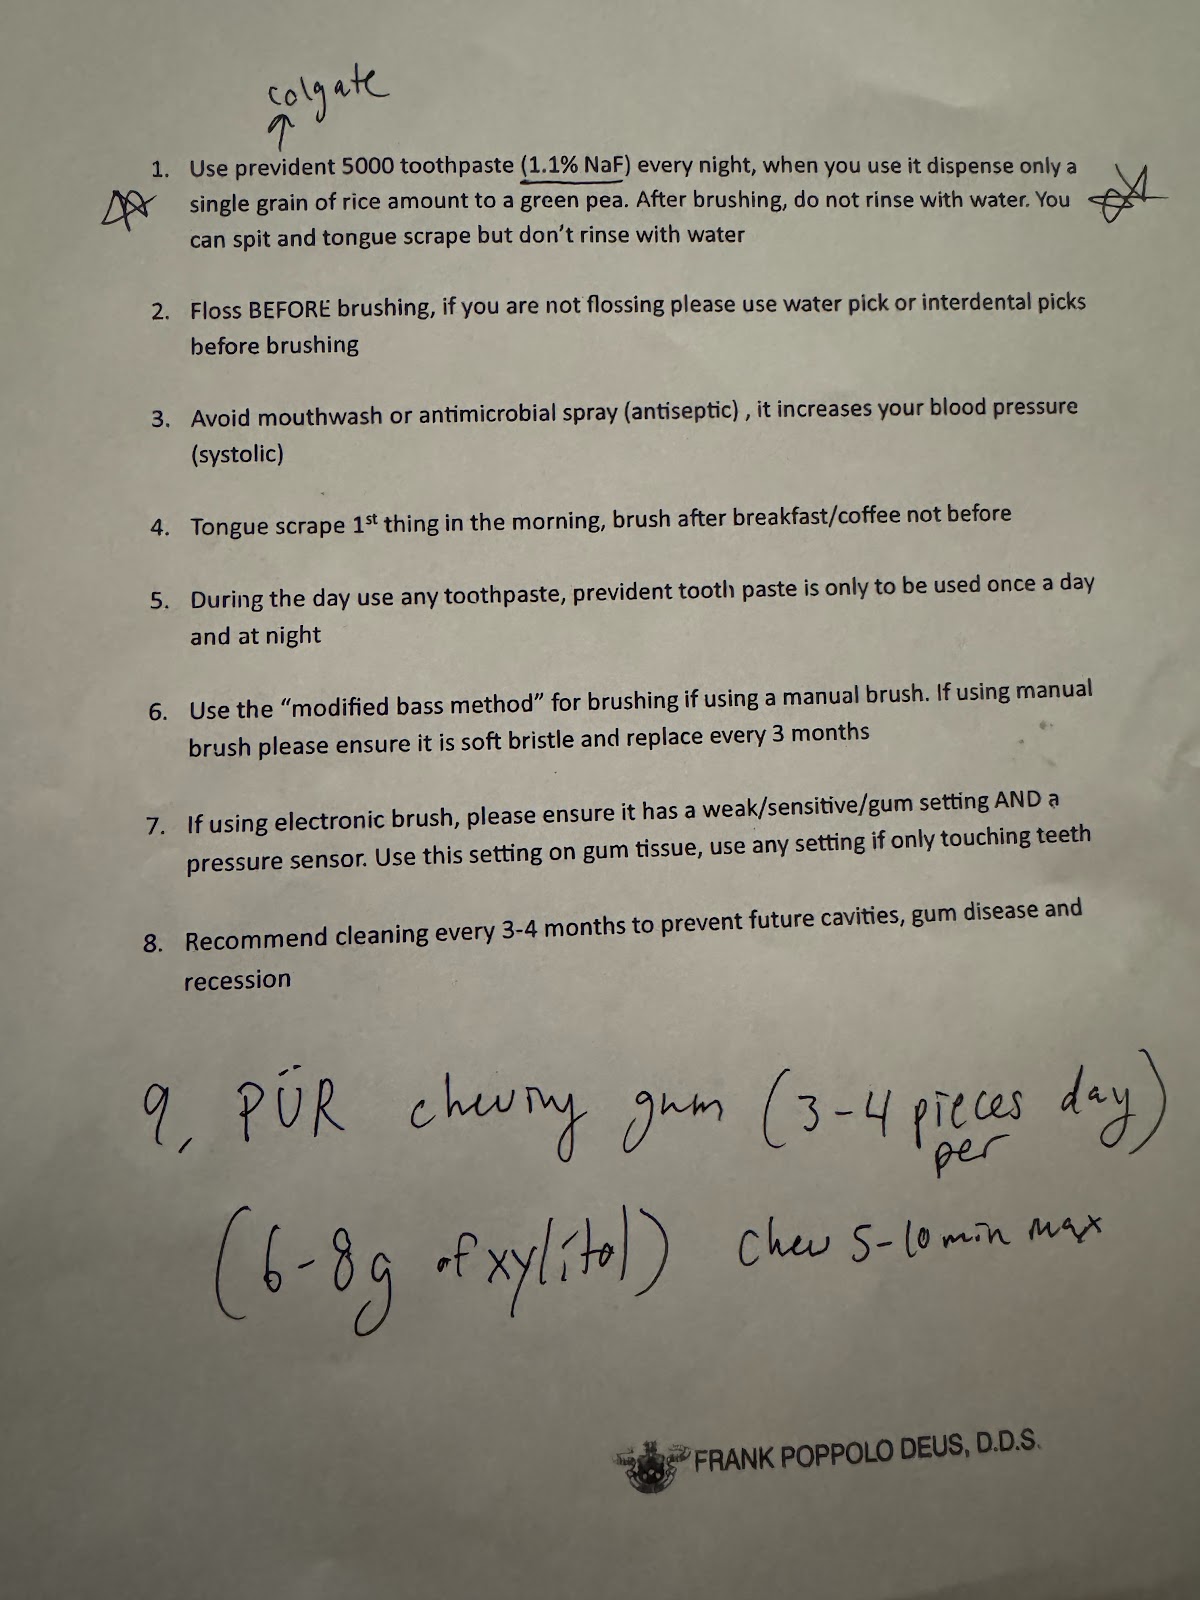 colgate
1. Use prevident 5000 toothpaste (1.1% NaF) every night, when you use it dispense only a
single grain of rice amount to a green pea. After brushing, do not rinse with water. You
can spit and tongue scrape but don't rinse with water
2. Floss BEFORE brushing, if you are not flossing please use water pick or interdental picks
before brushing
3. Avoid mouthwash or antimicrobial spray (antiseptic) , it increases your blood pressure
(systolic)
4. Tongue scrape 1st thing in the morning, brush after breakfast/coffee not before
5. During the day use any toothpaste, prevident tooth paste is only to be used once a day
and at night
6. Use the “modified bass method” for brushing if using a manual brush. If using manual
brush please ensure it is soft bristle and replace every 3 months
7. If using electronic brush, please ensure it has a weak/sensitive/gum setting AND a
pressure sensor. Use this setting on gum tissue, use any setting if only touching teeth
8. Recommend cleaning every 3-4 months to prevent future cavities, gum disease and
recession
9, PÜR chewing gum (3-4 pieces day)
per
(6-8g of xylitol) Chew 5-10 min max
FRANK POPPOLO DEUS, D.D.S.